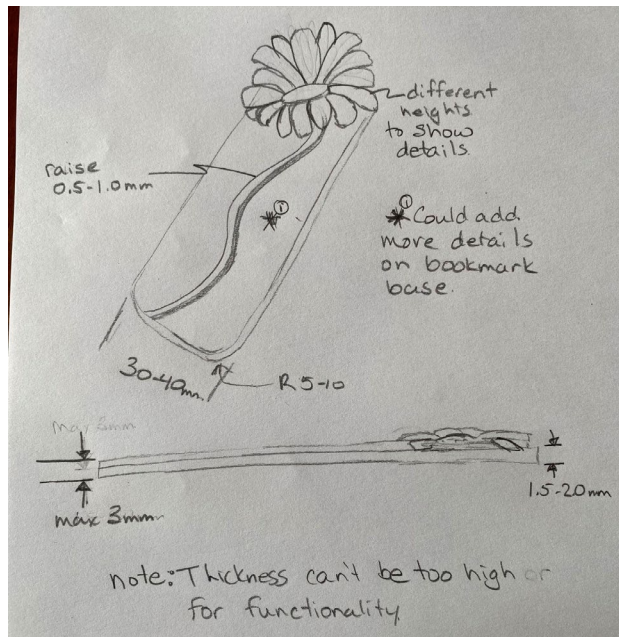 different
heights
to show
details
raise
0.5-1.0mm
* ① Could add
more details
on bookmark
base.
* ①
30-40mm.
R 5-10
max mm
max 3mm
1.5-2.0mm
note: Thickness can't be too high or
for functionality.